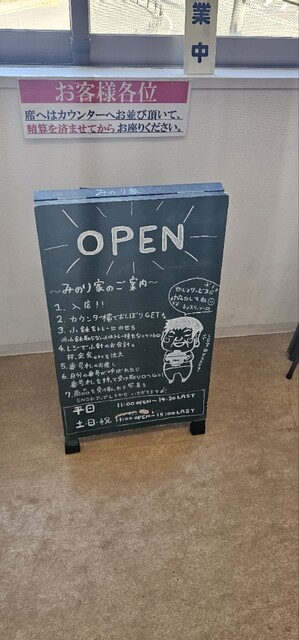 業中
お客様各位
席へはカウンターへお並び頂いて、
精算を済ませてからお座りください。
みのり家
OPEN
～みのり家のご案内～
1. 入店!!
2. カウンター横でおしぼりGET
3. 小鉢をトレーにのせる
4. レジで小鉢のお会計&
丼、定食etcを注文
5. 番号札のお渡し
6. 自分の番号が呼ばれたら
番号札を持って受け取り口へGO!
7.
平日 11:00 OPEN～14:30 LAST
土日・祝 11:00 OPEN～15:00 LAST